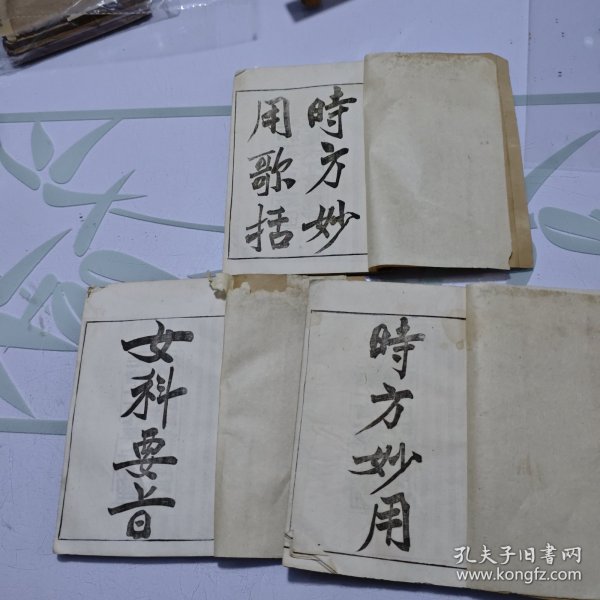 時方妙
用歌括
女科要旨
時方妙用
孔夫子旧书网
www.kongfz.com